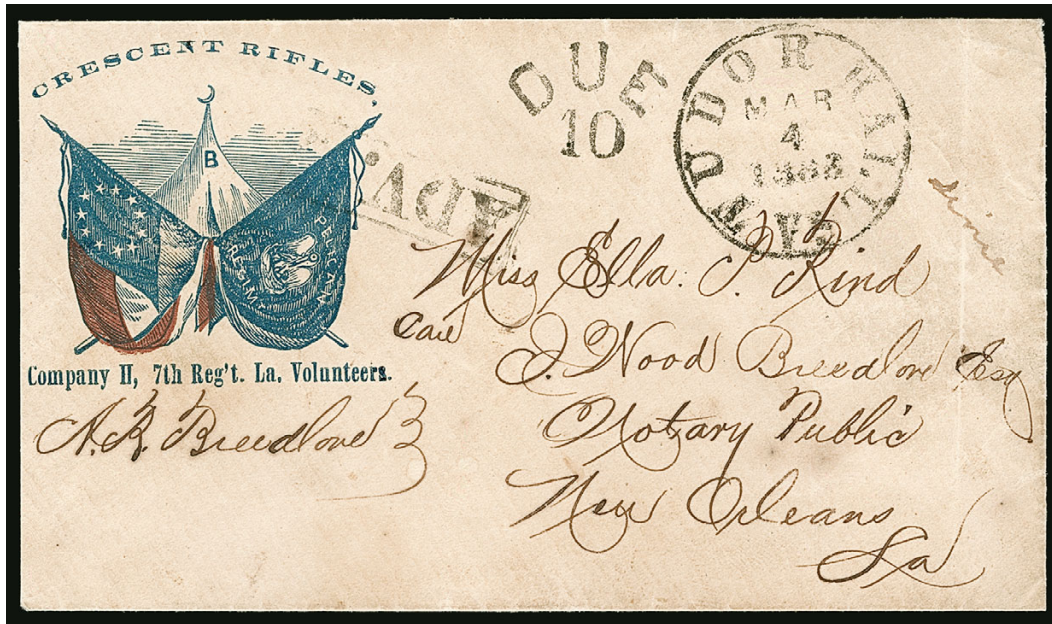 CRESCENT RIFLES,
B
PELICAN
REGIM'T
Company H, 7th Reg't. La. Volunteers.
A. R. Breedlove
DUE
10
TUDOR HALL
MAR
4
VA.
ADV.
Miss Ella. P. Kind
Care
J. Wood Breedlove Esq
Notary Public
New Orleans
La